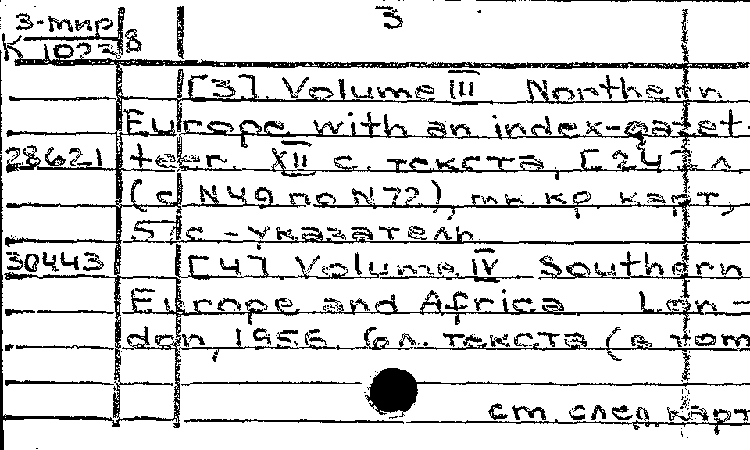 3
3-мир
К 10238
[3]. Volume III Northern
Europe with an index-gazet-
28621 teer. XII с. текста, [24] л.
(с N49 по N72), мн. кр. карт,
57 с - указатель
30443 [4]. Volume IV Southern
Europe and Africa Lon-
don, 1956. 6 л. текста (в том
см. след. карт